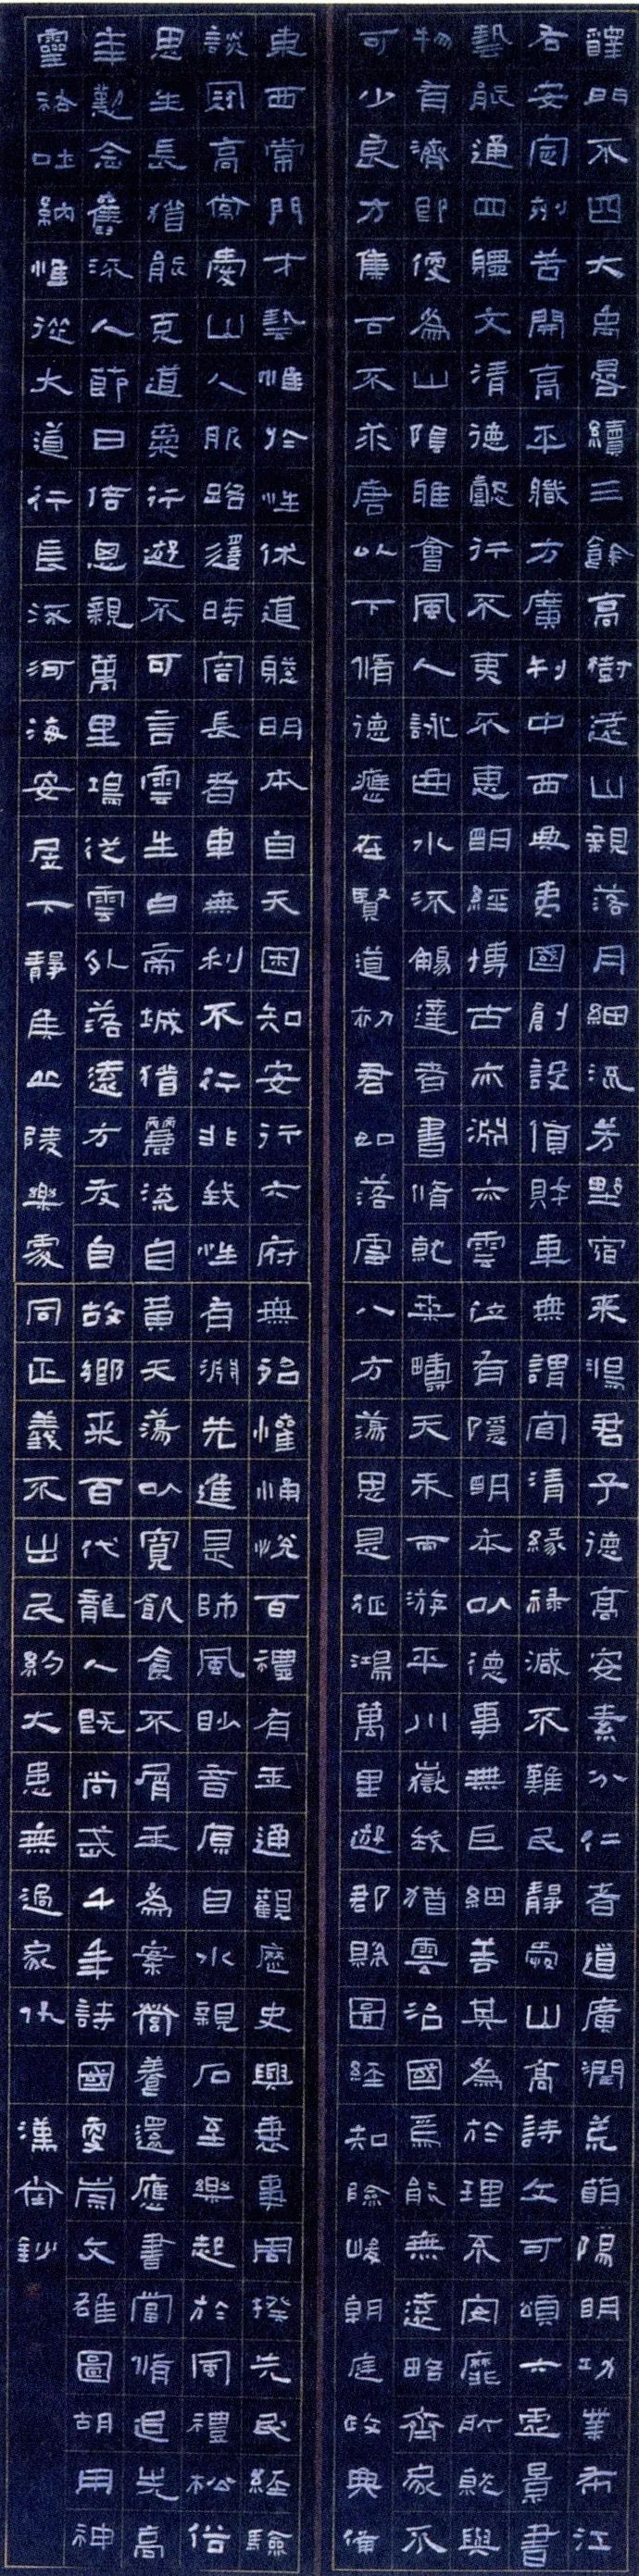 辭門不四大禹晷續三餘高樹遠山親落月細流芳墅宿来鴻君子德高安素分仁者道廣潤荒萌陽明功業布江
右安宦刻苦開高平職方廣利中西典夷國創設貨財車無謂宦清緣祿減不難民靜處山高詩文可頌六虛景書
藝能通四疆文清德懿行不夷不惠朙經博古亦淵亦雲位有隱朙本以德事無巨細善其為於理不安靡所就與
物有濟即便為山陰雎會風人詠曲水流觴達者書脩就桒疇天禾而游平川嶽我猶雲治國焉能無遠略齊家不
可少良方集古不求唐以下脩德應在賢道初君如落雁八方蕩思是征鴻萬里遊郡縣圖經知險峻朝庭政典備
東西常門才藝惟於性休道賤明本自天困知安行六府無殆懽悀悅百禮有王通觀歷史興衰事周揆先民經驗
談周高齋慶山人服路還時宮長者車無利不行非我性有淵先進是師風眇音原自水親石至樂起於風禮松俗
思生長猶能克道棄行遊不可言雲生白斋城猶麗流自黃天蕩以寬飲食不屑王為案營養還應書當脩退先高
年勤念舊派人節日倍思親萬里鴻從雲外落遠方友自故鄉来百代龍人既尚武千年詩國更崇文雄圖胡用神
靈祐吐納惟從大道行長流河海安居下靜集丘陵樂處同正義不出民約大患無過家仇 漢堂鈔